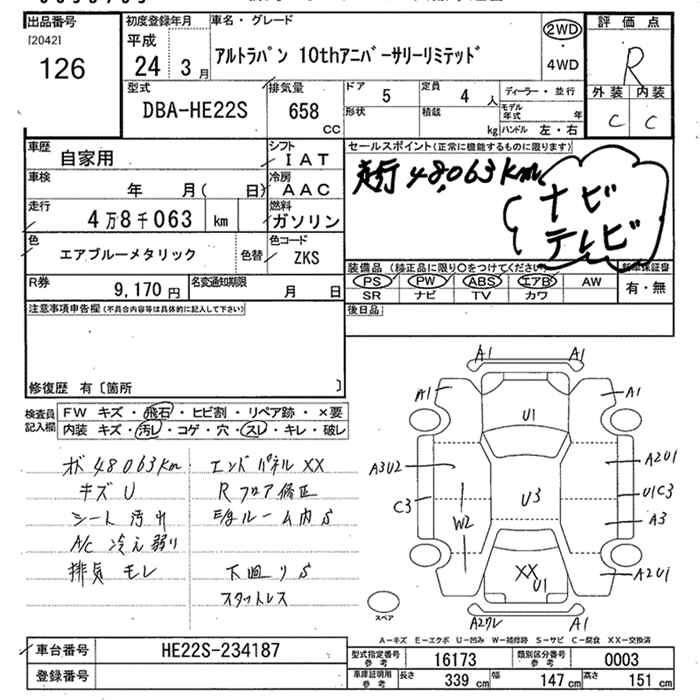 出品番号
[2042]
126
初度登録年月
平成
24 年 3 月
車名・グレード
アルトラパン 10thアニバーサリーリミテッド
2WD
・
4WD
評価点
R
外装 内装
C C
型式
DBA-HE22S
排気量
658
CC
ドア
5
定員
4 人
形状
積載
kg
ディーラー・並行
モデル年式 年
ハンドル 左・右
車歴
自家用
シフト
IAT
車検
年 月( 日)
冷房
AAC
走行
4万8千063 km
燃料
ガソリン
色
エアブルーメタリック
色替
色コード
ZKS
R券
9,170円
名変通知期限
月 日
セールスポイント(正常に機能するものに限ります)
走行 48,063km
ナビ
テレビ
装備品 (純正品に限り○をつけてください)
PS PW ABS エアB AW
SR ナビ TV カワ
新車保証書
有・無
後日品
注意事項申告欄(不具合内容等は具体的に記入して下さい)
修復歴 有〔箇所 〕
検査員
記入欄
FW キズ・飛石・ヒビ割・リペア跡・×要
内装 キズ・汚レ・コゲ・穴・スレ・キレ・破レ
48063km
キズ U
シート 汚れ
A/C 冷え弱り
排気 モレ
エンドパネル XX
Rフロア修正
ルーム内S
下回りS
スタットレス
A1 A1
A1 A1
U1
A3U2 A2U1
C3 U3 U1C3
W2 A3
XX U1 A2U1
A2ワレ A1
スペア
A-キズ E-エクボ U-凹み W-補修跡 S-サビ C-腐食 XX-交換済
車台番号
HE22S-234187
登録番号
型式指定番号
参考
16173
類別区分番号
参考
0003
車庫証明用
参考
長さ 339 cm 幅 147 cm 高さ 151 cm